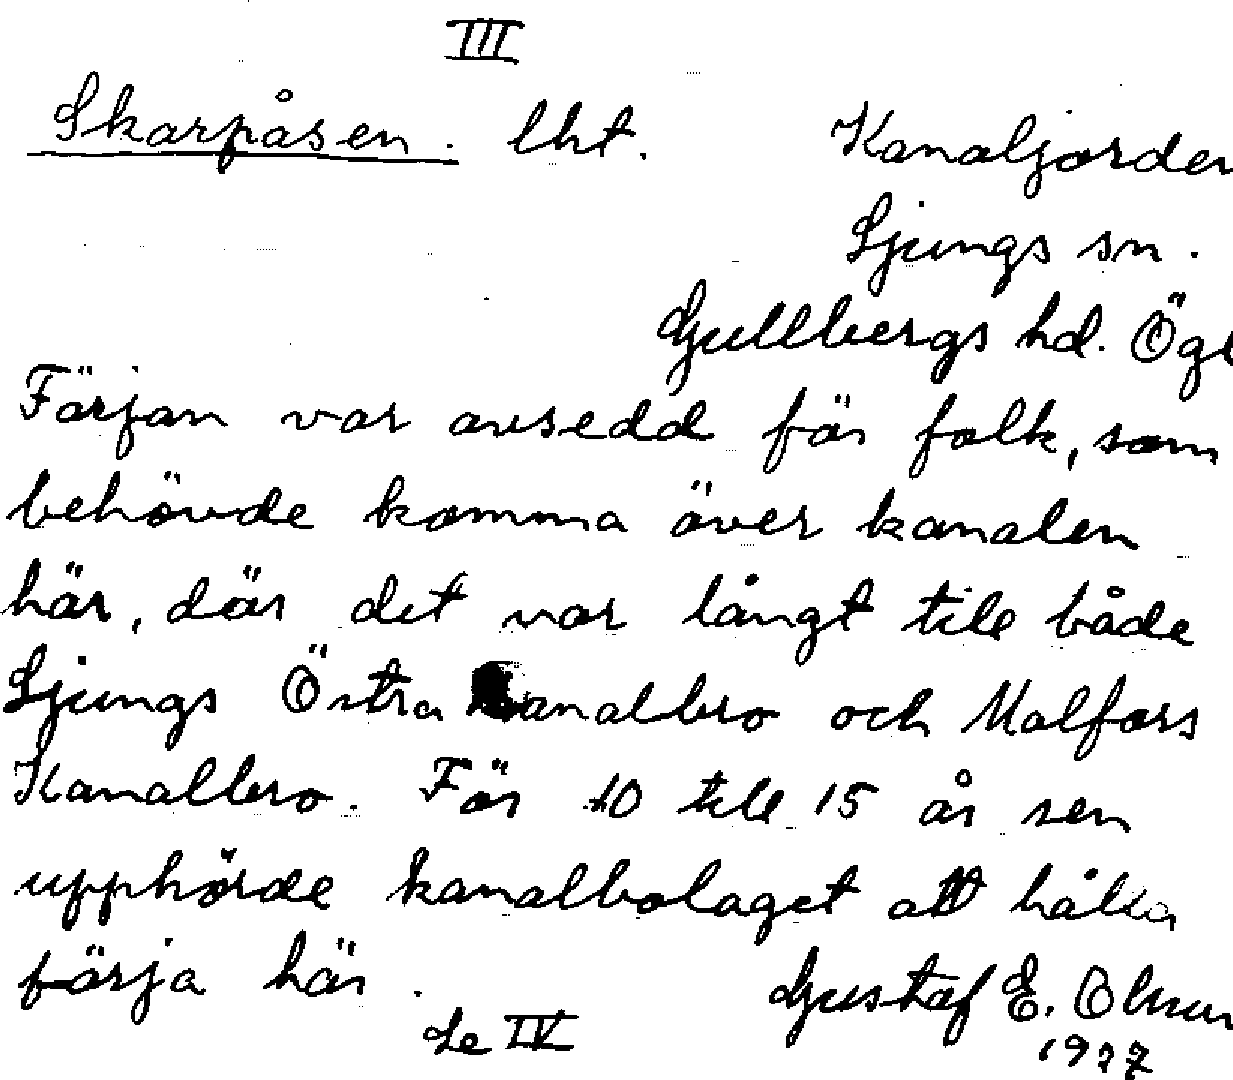 III
Skarpåsen. lht. Kanaljorden
Ljungs sn.
Gullbergs hd. Ögl
Färjan var avsedd för folk, som
behövde komma över kanalen
här, där det var långt till både
Ljungs Östra Kanalbro och Malfors
Kanalbro. För 10 till 15 år sen
upphörde kanalbolaget att hålla
färja här.
Gustaf E. Olsson
Se IV